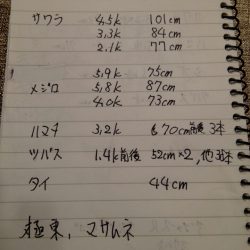 サワラ 4.5k 101cm
3.3k 84cm
2.1k 77cm
5.9k 75cm
メジロ 5.8k 87cm
4.0k 73cm
ハマチ 3.2k 70cm前後 3本
ツバス 1.4k前後 52cm×2, 他3本
タイ 44cm
極東, マサムネ